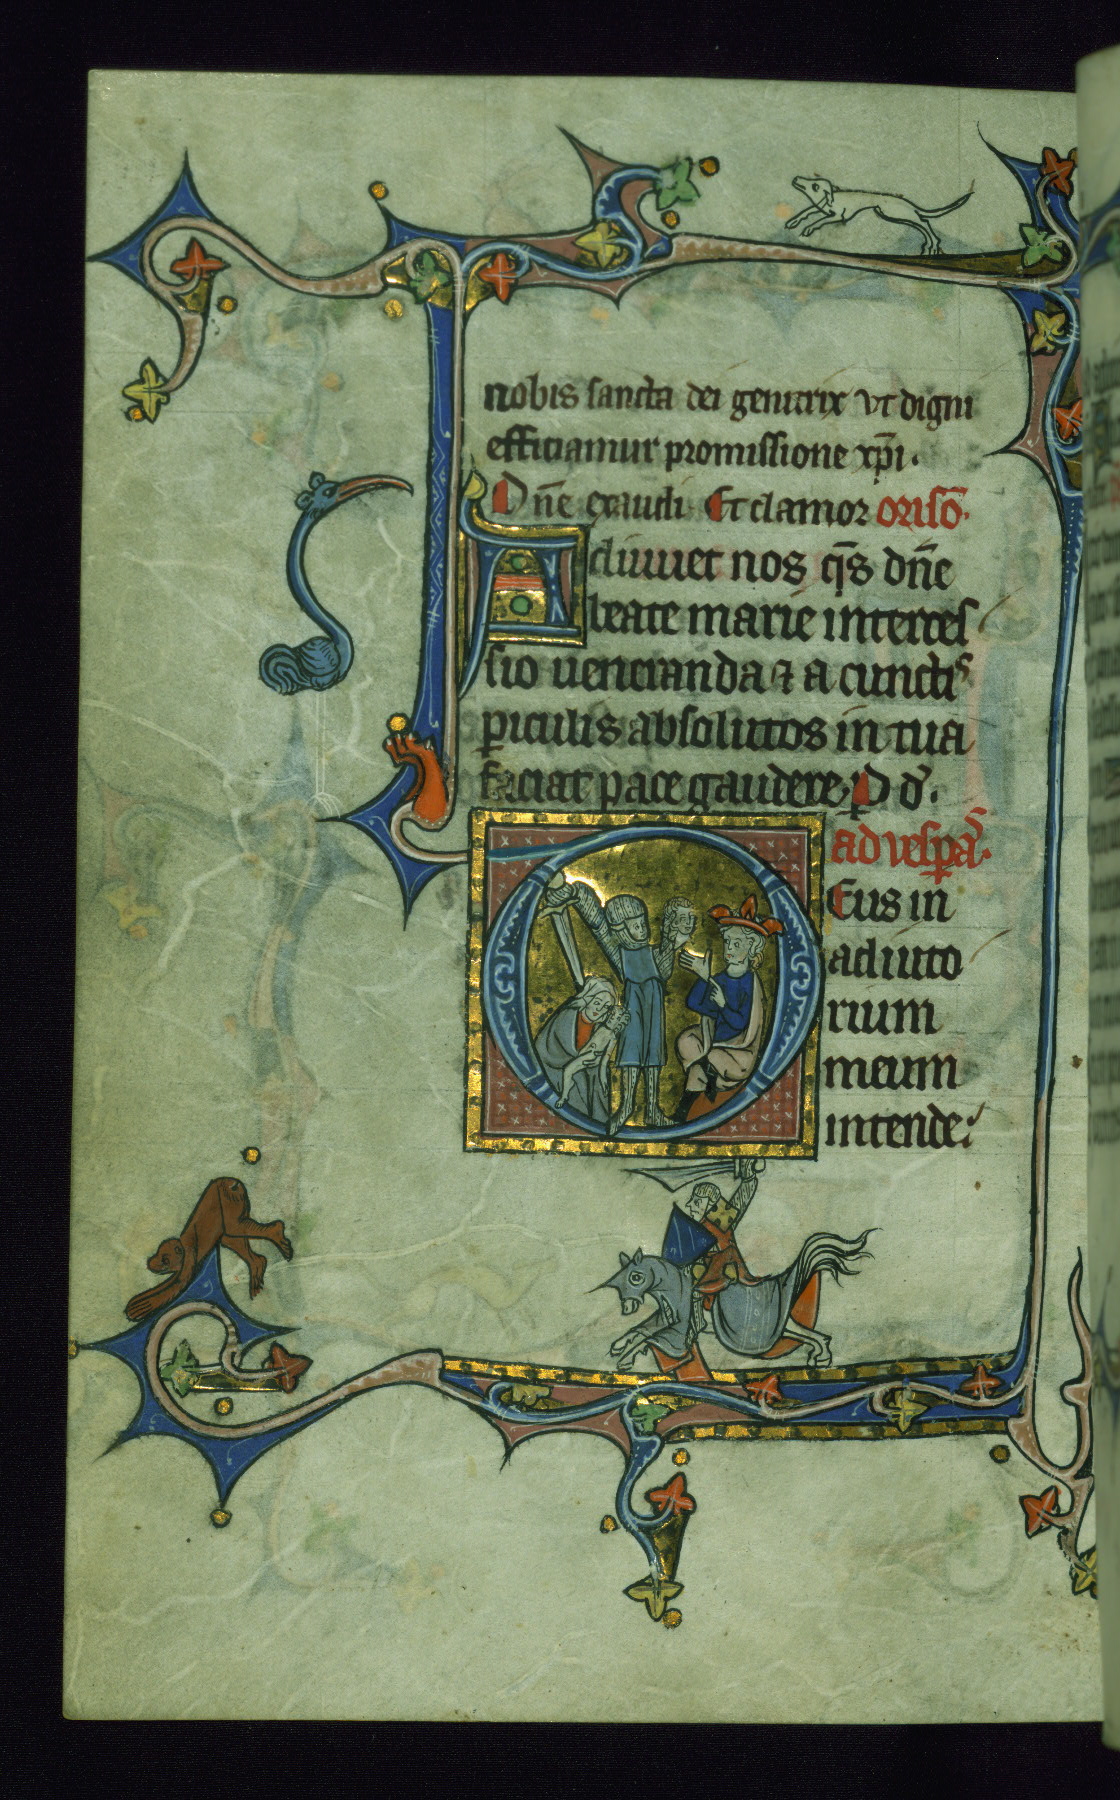 nobis sancta dei genitrix vt digni
efficiamur promissione xp̄i.
Dn̄e exaudi. Et clamor orisō.
Adiuuet nos q̄s dn̄e
beate marie interces
sio ueneranda ⁊ a cunctis
ꝑiculis absolutos in tua
faciat pace gaudere. P d̄.
ad uesꝑas.
Deus in
adiuto
rium
meum
intende.